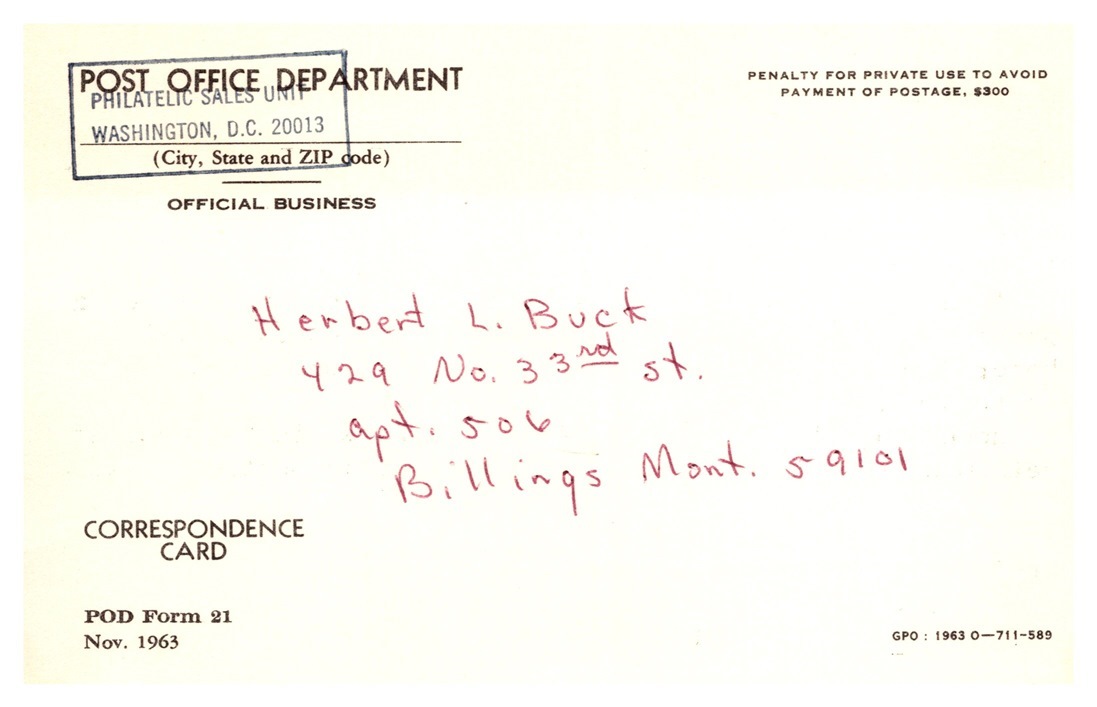 POST OFFICE DEPARTMENT
PHILATELIC SALES UNIT
WASHINGTON, D.C. 20013
(City, State and ZIP code)
OFFICIAL BUSINESS
PENALTY FOR PRIVATE USE TO AVOID
PAYMENT OF POSTAGE, $300
Herbert L. Buck
429 No. 33rd st.
apt. 506
Billings Mont. 59101
CORRESPONDENCE
CARD
POD Form 21
Nov. 1963
GPO : 1963 O—711-589